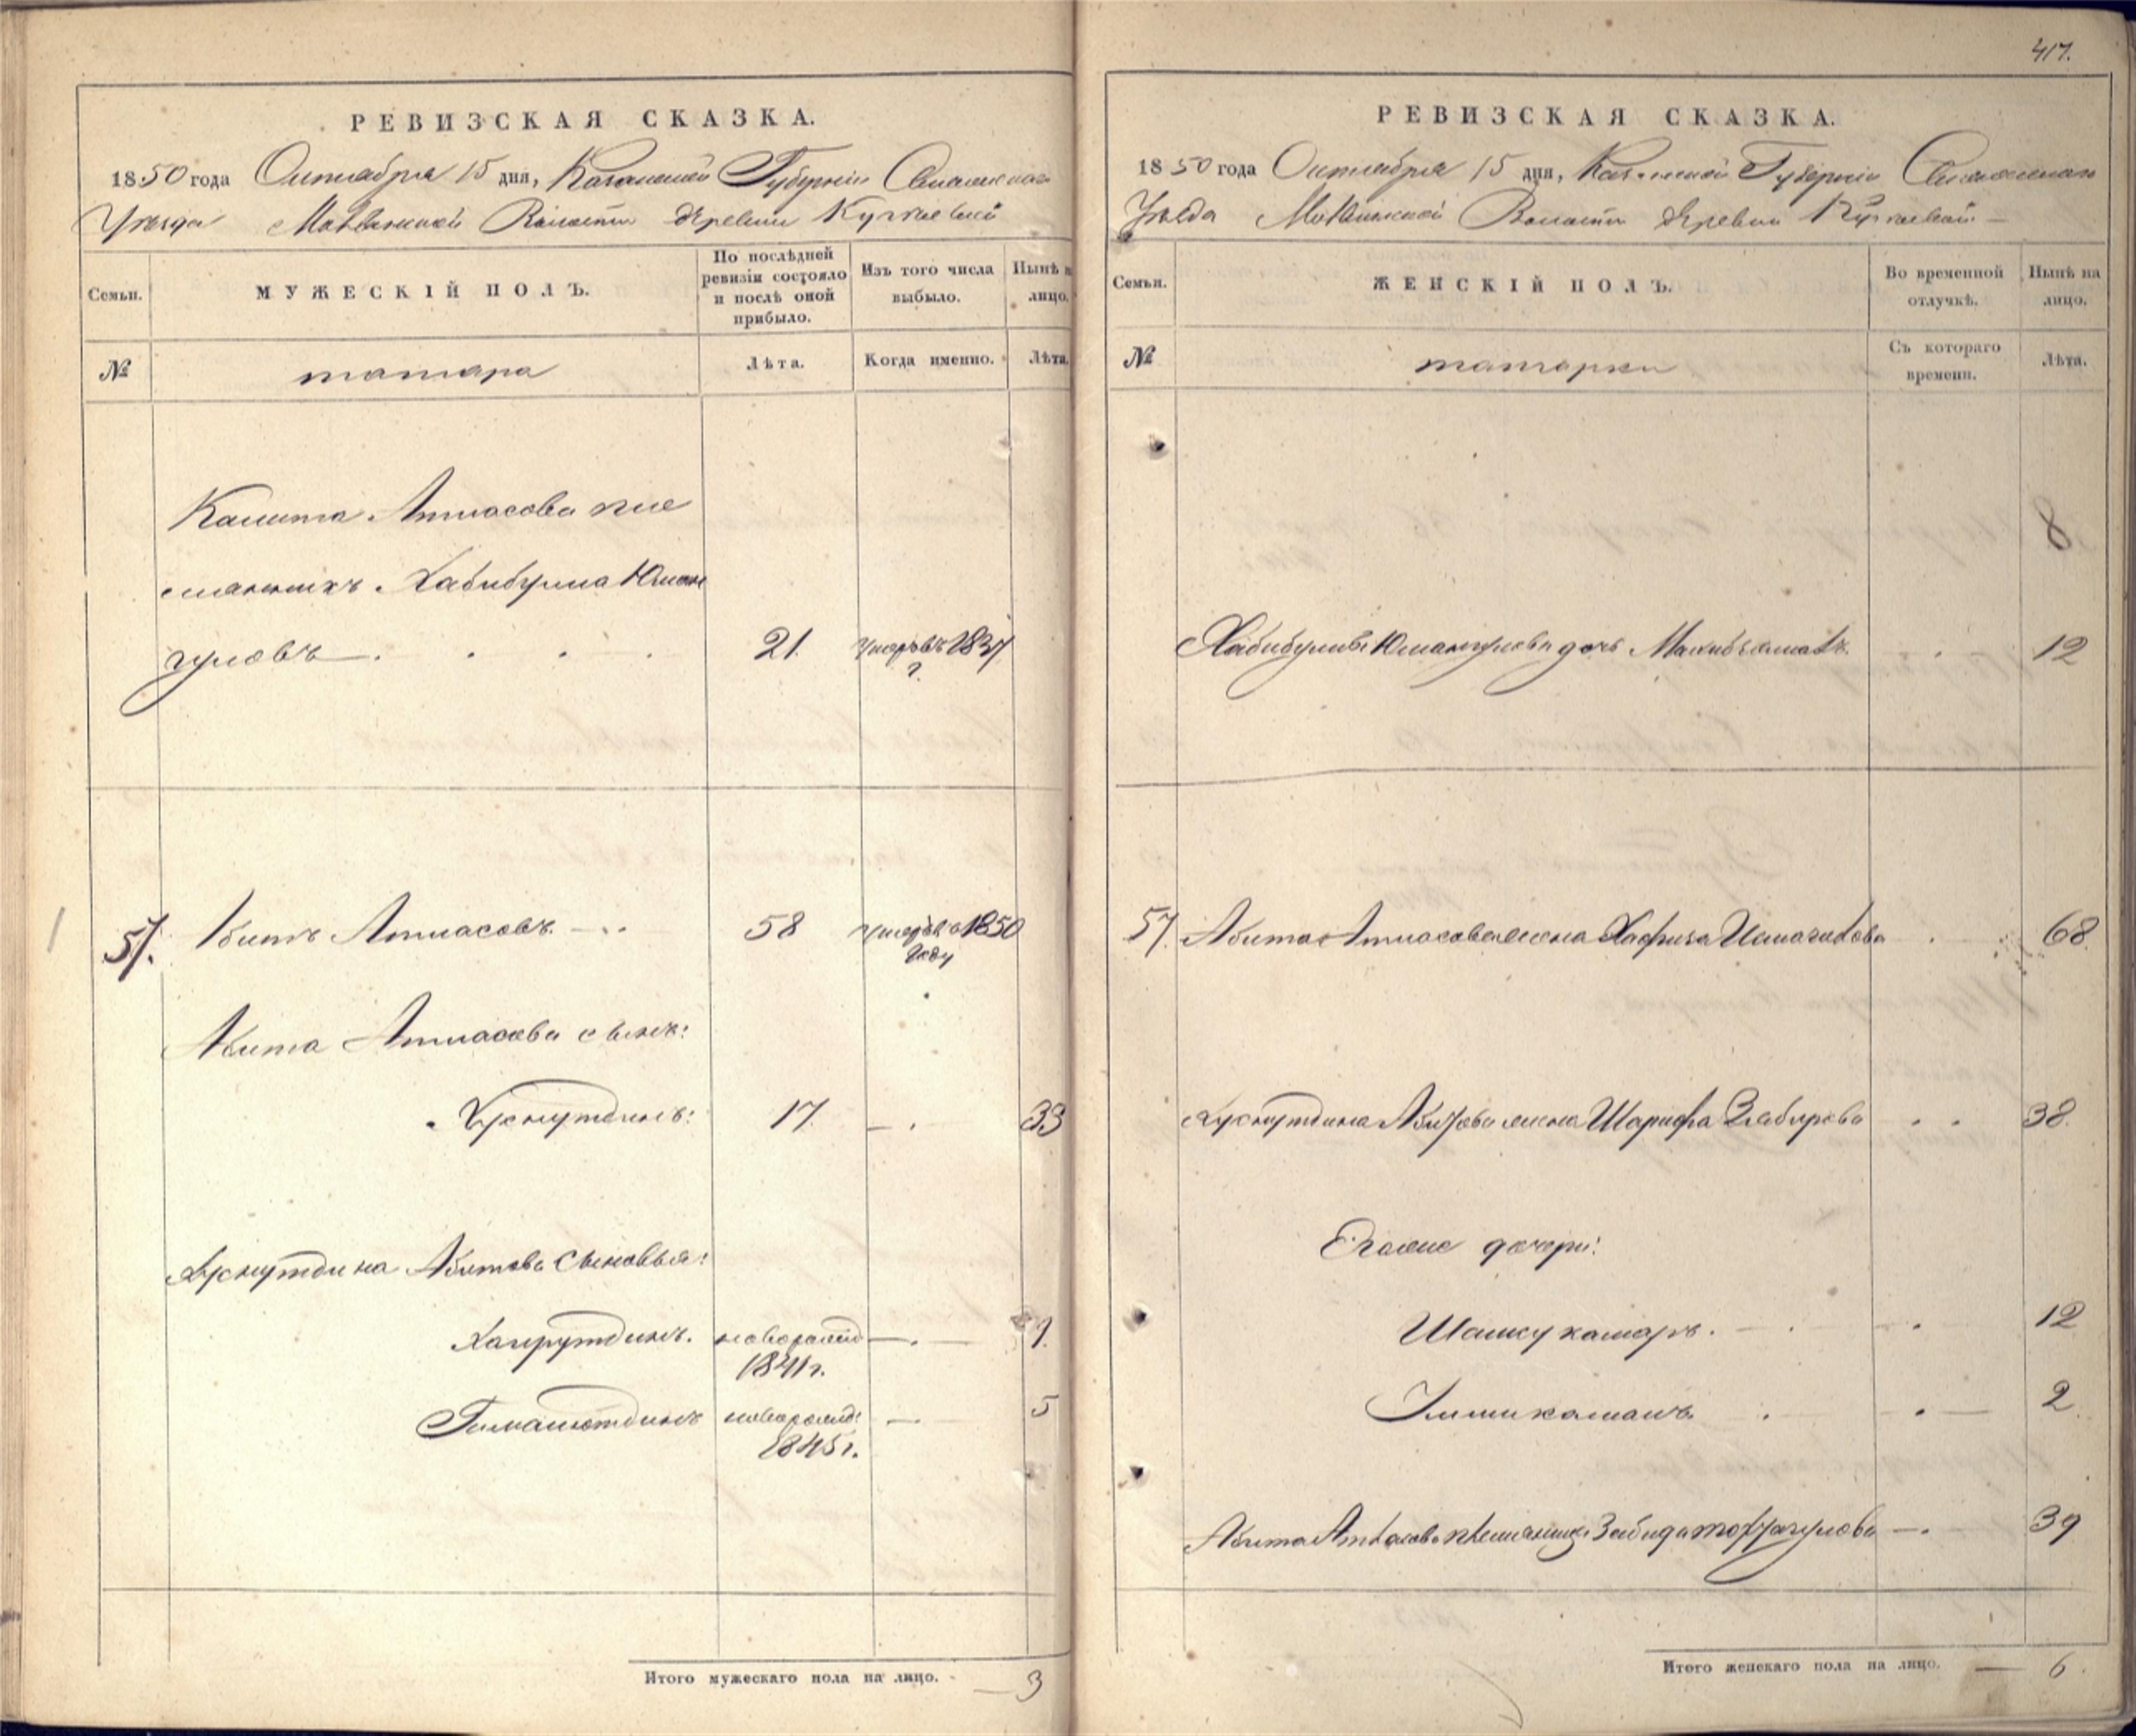 РЕВИЗСКАЯ СКАЗКА.
1850 года Октября 15 дня, Казанской Губернiи Спасскаго
Уезда Волости деревни
Семьи.
МУЖЕСКIЙ ПОЛЪ.
По послѣдней ревизiи состояло и послѣ оной прибыло.
Изъ того числа выбыло.
Нынѣ на лицо.
№
татара
Лѣта.
Когда именно.
Лѣта.
Атласова пле
мянникъ Хабибулла Юман
гуловъ 21. умеръ въ 1837
г.
57. Абитъ Атласовъ 58 умеръ въ 1850
году
Абита Атласова сынъ:
Хуснутдинъ: 17. 33
Хуснутдина Абитова сыновья:
Хайрутдинъ. новорожд 9.
1841 г.
новорожд: 5
1845 г.
Итого мужескаго пола на лицо. — 3
417.
РЕВИЗСКАЯ СКАЗКА.
1850 года Октября 15 дня, Казанской Губернiи Спасскаго
Уѣзда Волости деревни
Семьи.
ЖЕНСКIЙ ПОЛЪ.
Во временной отлучкѣ.
Нынѣ на лицо.
№
татарки
Съ котораго времени.
Лѣта.
8
Хабибуллы Юмангулова дочь 12
57. Абита Атласова жена Хафиза 68.
Хуснутдина Абитова жена Шарифа Забирова 38.
Его же дочери:
Шамсукамаръ. 12
2.
Абита Атласова племянница 39
Итого женскаго пола на лицо. — 6.